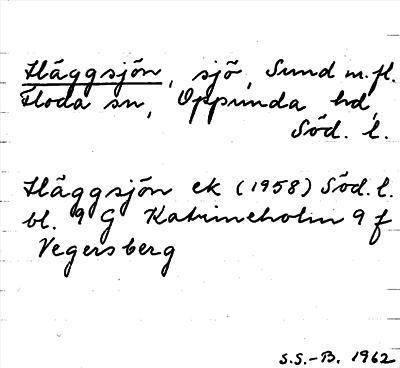 Häggsjön, sjö, Sund m.fl.
Floda sn, Oppunda hd,
Söd. l.
Häggsjön ek (1958) Söd. l.
bl. 9 G Katrineholm 9 f
Vegersberg
S.S.-B. 1962